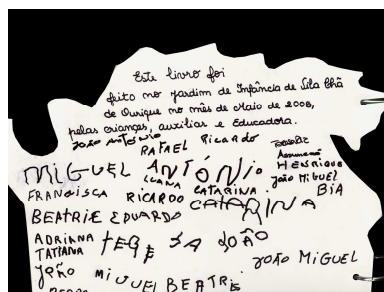 Este livro foi
feito no Jardim de Infância de Vila Chã
de Ourique no mês de Maio de 2008,
pelas crianças, auxiliar e Educadora.
JOÃO ANTÓNIO RAFAEL RICARDO
MIGUEL ANTÓNIO HENRIQUE
LUANA CATARINA JOÃO MIGUEL
FRANCISCA RICARDO CATARINA BIA
BEATRIZ EDUARDO
ADRIANA SA JOÃO
TATIANA JOÃO MIGUEL
JOÃO MIGUEL BEATRIZ